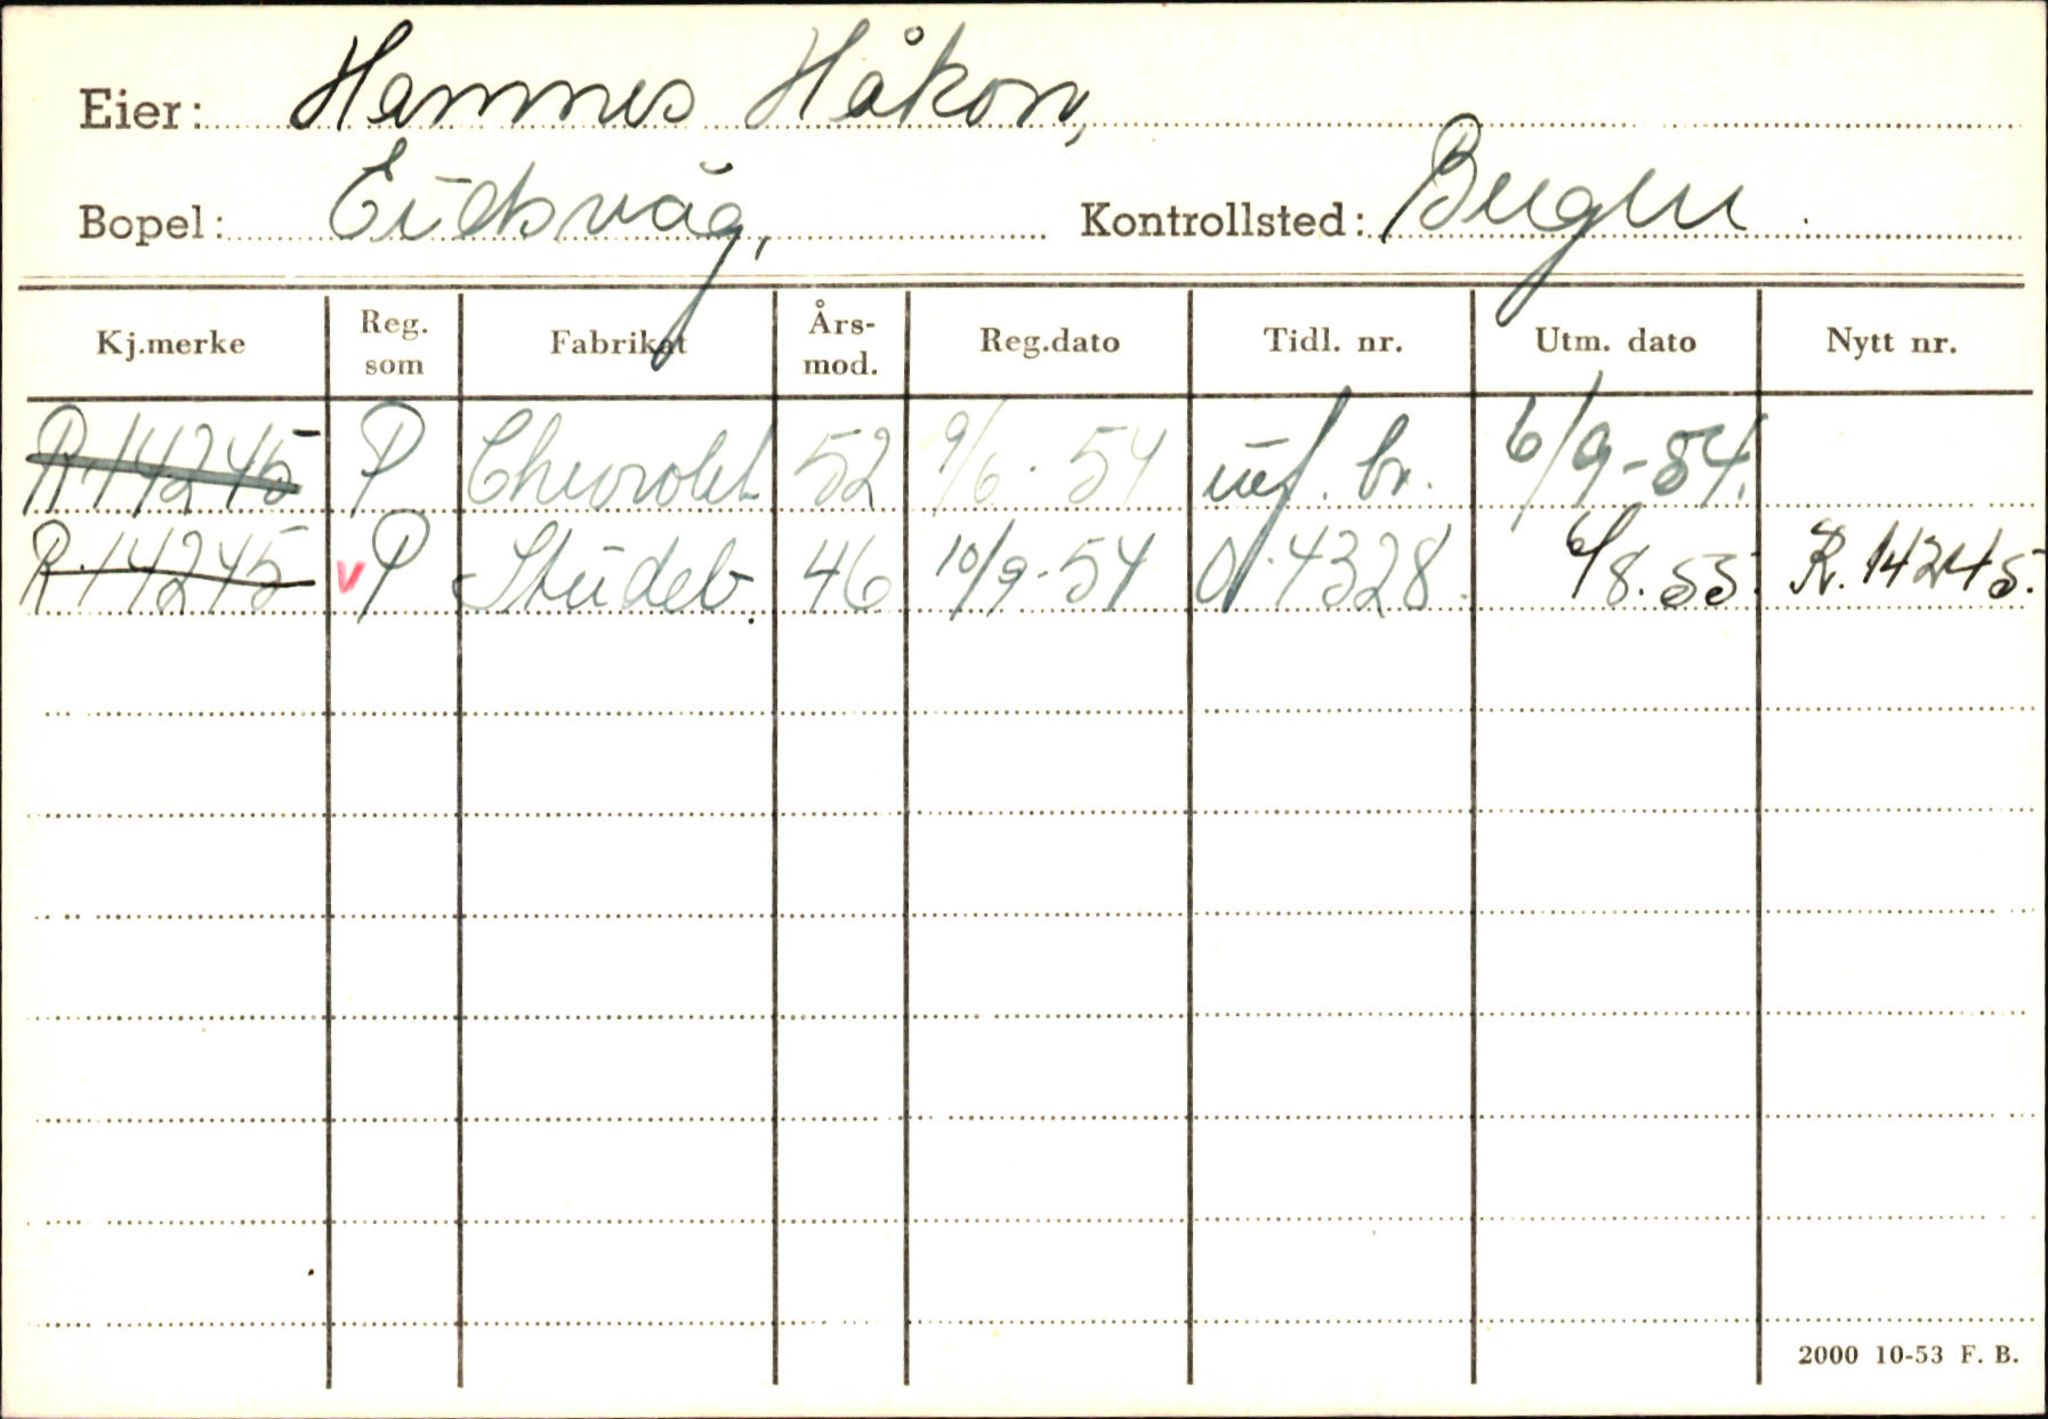 Eier: Hamnes Håkon,
Bopel: Eidsvåg, Kontrollsted: Bergen
Kj.merke Reg. som Fabrikat Års-mod. Reg.dato Tidl. nr. Utm. dato Nytt nr.
R 14245 P Chevrolet 52 9/6. 54 br. 6/9-54.
R. 14245 v P Studeb. 46 10/9-54 4328. 6/8. 55. R. 14245.
2000 10-53 F. B.